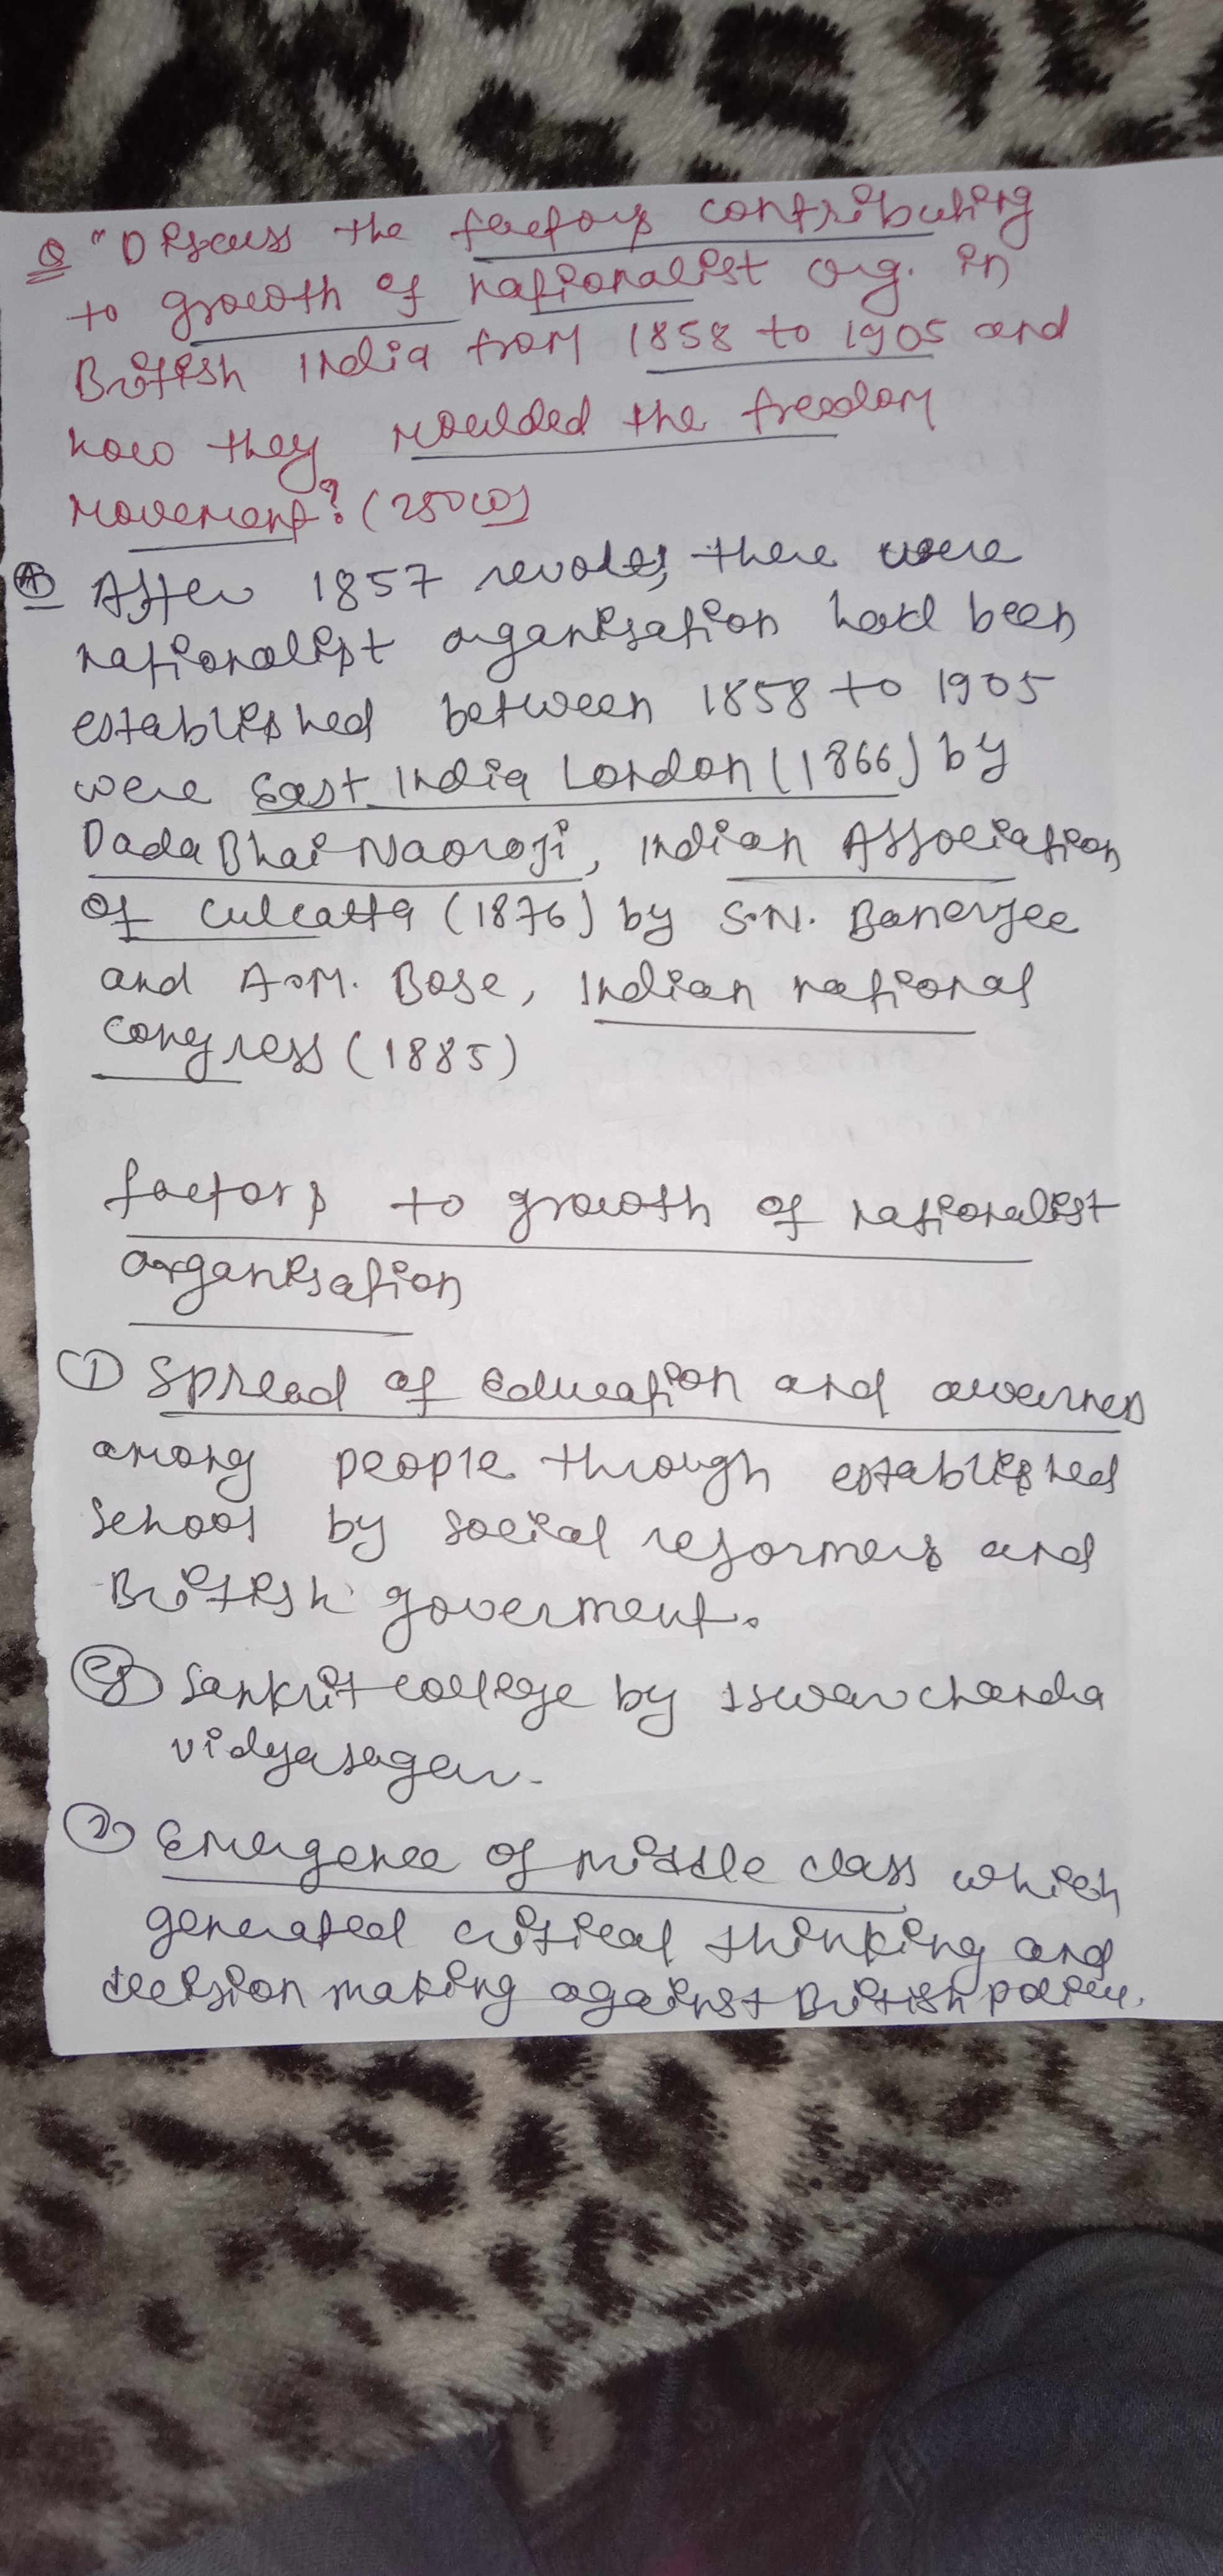 Q "Discuss the factors contributing
to growth of nationalist org. in
British India from 1858 to 1905 and
how they moulded the freedom
movement? (250 w)
A After 1857 revolt, there were
nationalist organisation had been
established between 1858 to 1905
were East India London (1866) by
Dada Bhai Naoroji, Indian Association
of Culcatta (1876) by S.N. Banerjee
and A.M. Bose, Indian national
congress (1885)
factors to growth of nationalist
organisation
① Spread of education and awarness
among people through established
school by social reformers and
British goverment.
eg Sankrit college by Iswar chandra
vidyasagar.
② Emergence of middle class which
generated critical thinking and
decision making against British policy.